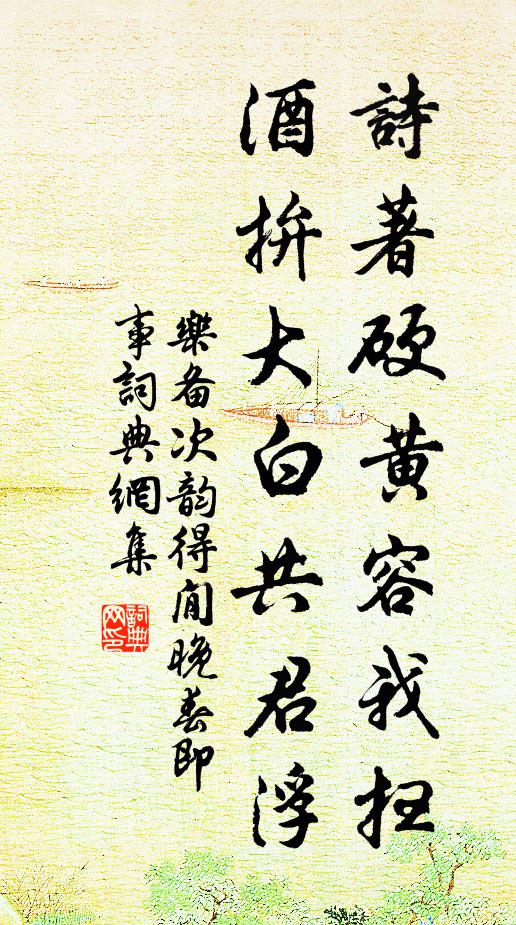 詩著硬黃容我扫
酒拚大白共君浮
樂备次韵得闻晚春即
事詞典網集
詞典
网印